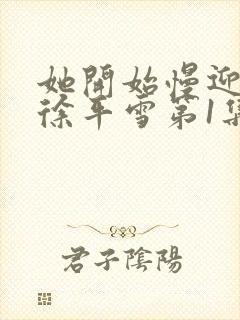 她開始慢迎
徐平雪第1集
君子陰陽